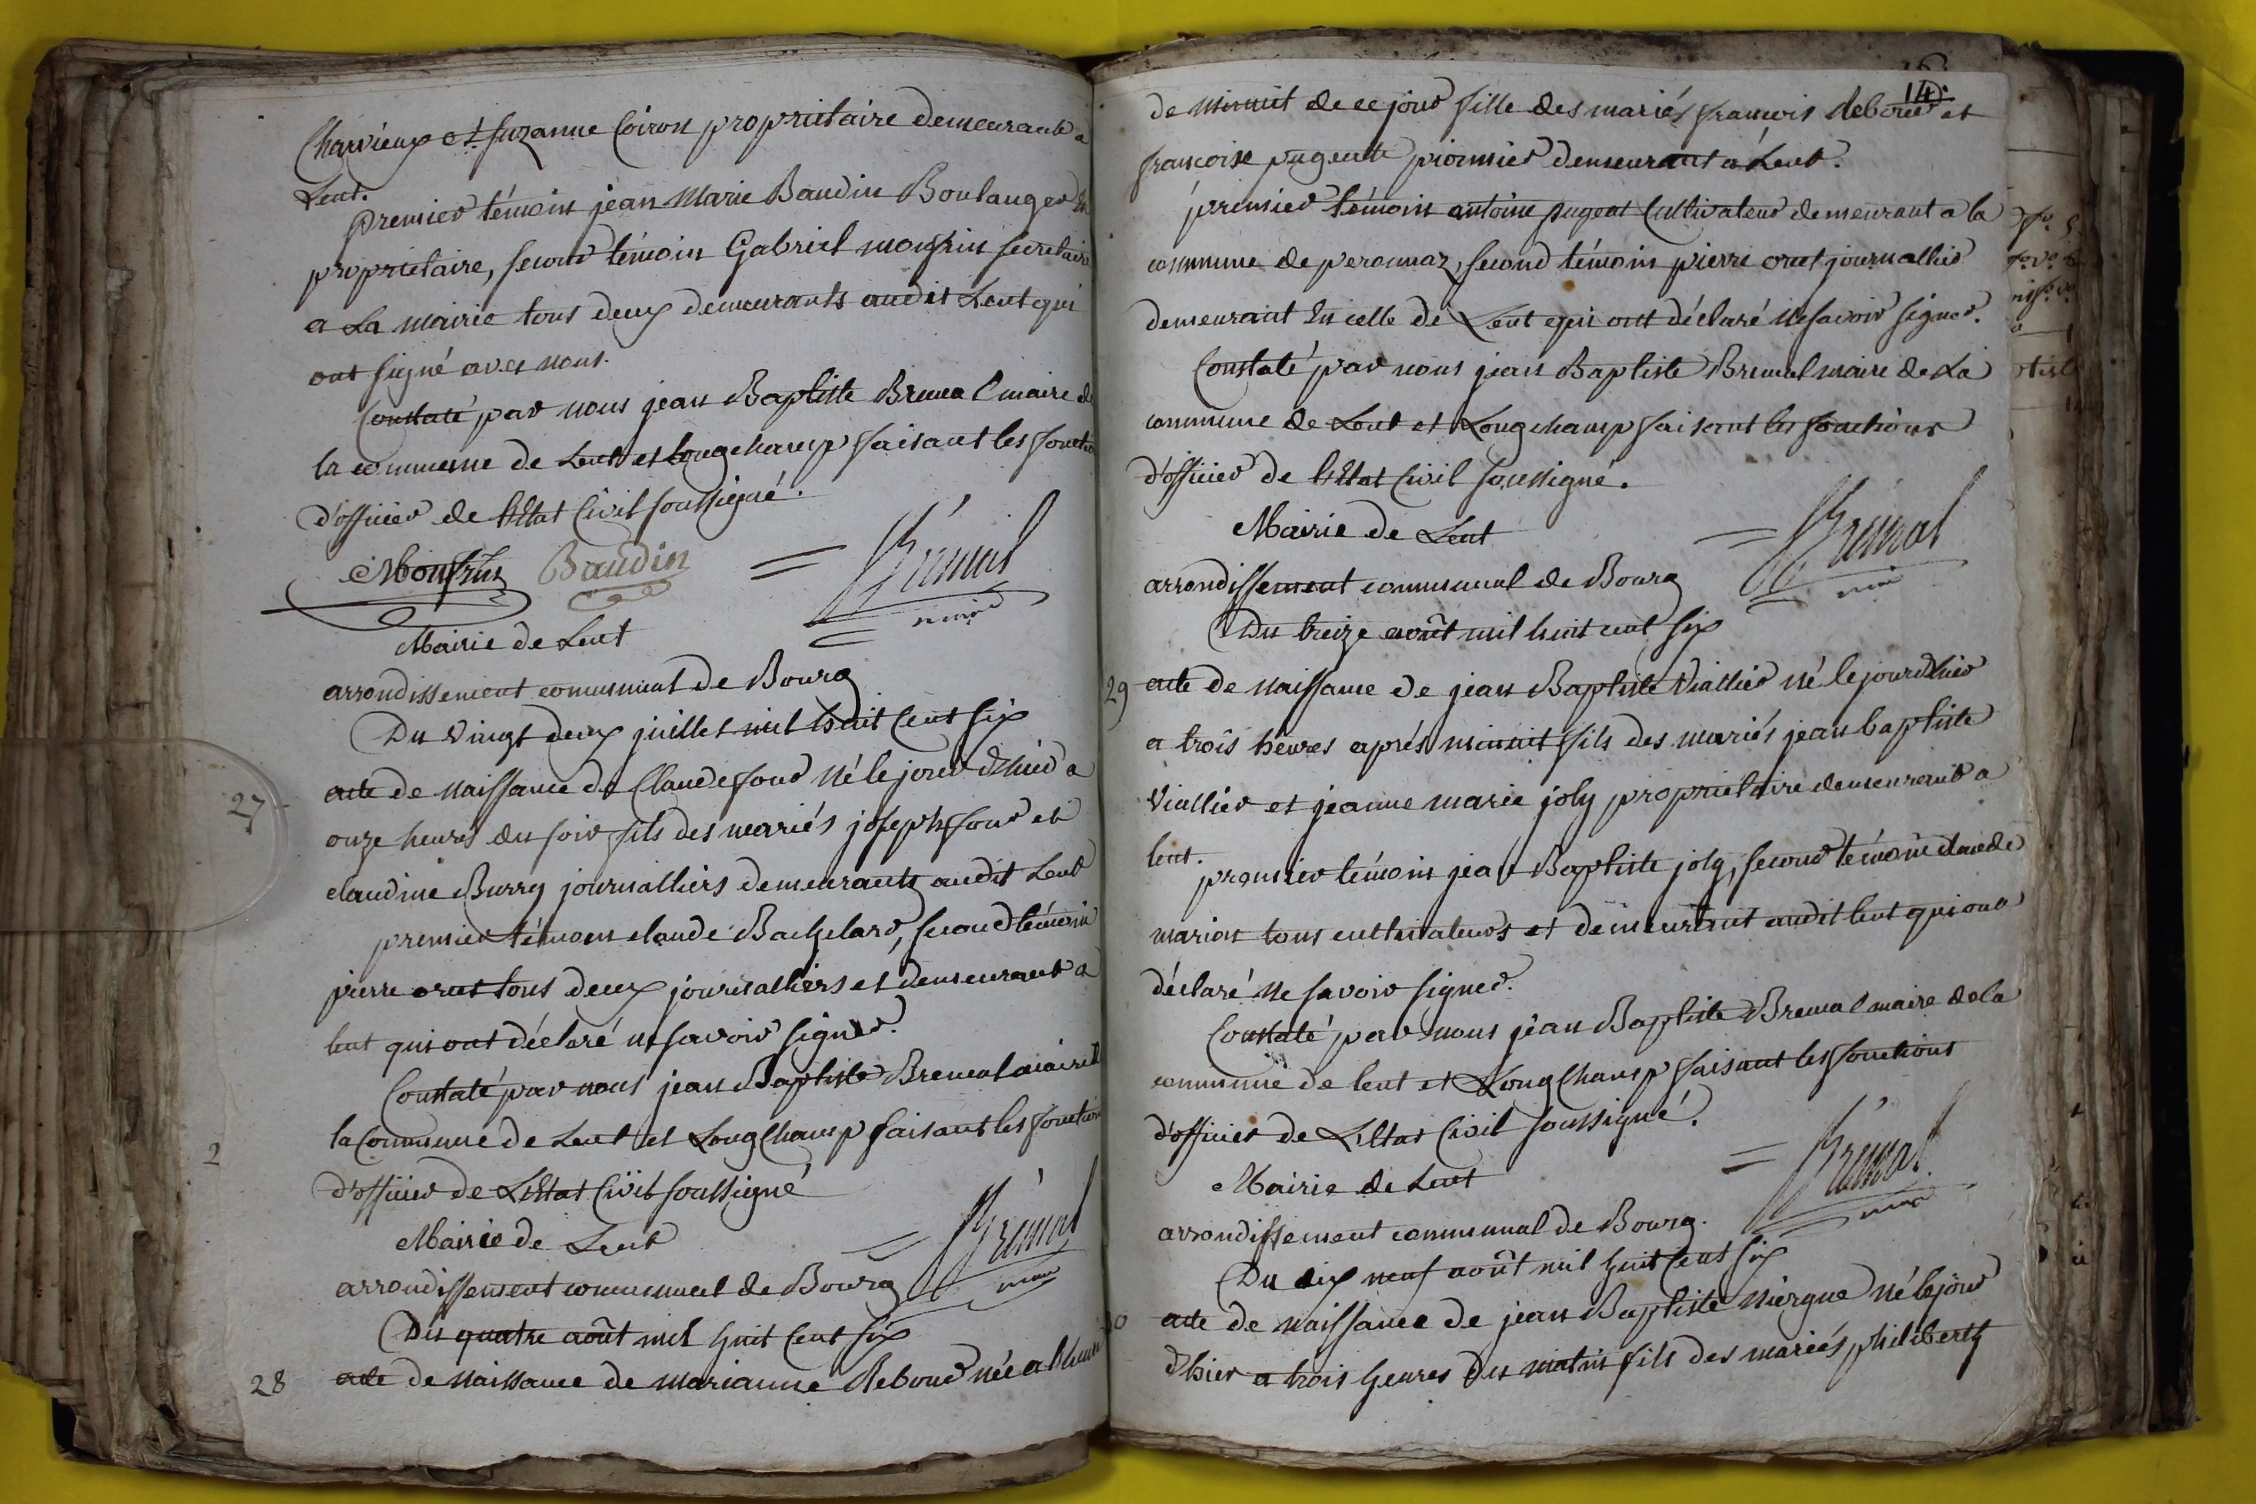 Charvieux et suzanne Coiron propriétaire demeurants a
Lent.
premier témoin jean Marie Baudin Boulanger Et
propriétaire, second témoin Gabriel monfrin secretaire
a La mairie tous deux demeurants audit Lent qui
ont signé avec nous.
Constaté par nous jean Baptiste Bremal maire de
la commune de Lent et Longchamp faisant les fonctions
d'officier de l'Etat Civil soussigné.
Monfrin Baudin = Brémal
maire
Mairie de Lent
arrondissement communal de Bourg
Du vingt deux juillet mil huit cent six
27 acte de naissance de Claude four né le jour d'hier a
onze heures du soir fils des mariés joseph four et
claudine Burry journalliers demeurants audit Lent
premier témoin claude Bachelard, second témoin
pierre orut tous deux journalliers et demeurant a
lent qui ont déclaré ne savoir signer.
Constaté par nous jean Baptiste Bremal maire de
la Commune de Lent et Longchamp faisant les fonctions
2
d'officier de L'Etat Civil soussigné
Mairie de Lent = Brémal
arrondissement communal de Bourg maire
Du quatre août mil huit cent six
28 acte de naissance de marianne Rebour née a l'heure
14.
de minuit de ce jour fille des mariés françois Rebour et
françoise pugeat demeurant a Lent.
premier témoin antoine pugeat Cultivateur demeurant a la
commune de peronnaz, second témoin pierre orut journallier
demeurant En celle de Lent qui ont déclaré ne savoir signer.
Constaté par nous jean Baptiste Bremal maire de La
commune de Lent et Longchamp faisant les fonctions
d'officier de l'Etat Civil soussigné.
Mairie de Lent = Brémal
arrondissement communal de Bourg maire
Du treize août mil huit cent six
29 acte de naissance de jean Baptiste Viallier né le jour d'hier
a trois heures aprés minuit fils des mariés jean baptiste
Viallier et jeanne marie joly propriétaire demeurant a
lent.
premier témoin jean Baptiste joly, second témoin claude
marion tous cultivateurs et demeurant audit lent qui ont
déclaré ne savoir signer.
Constaté par nous jean Baptiste Bremal maire de la
commune de lent et Longchamp faisant les fonctions
d'officier de L'Etat Civil soussigné.
Mairie de Lent = Brémal
arrondissement communal de Bourg. maire
Du dix neuf août mil huit cent six
30 acte de naissance de jean Baptiste niergue né le jour
d'hier a trois heures du matin fils des mariés philiberth